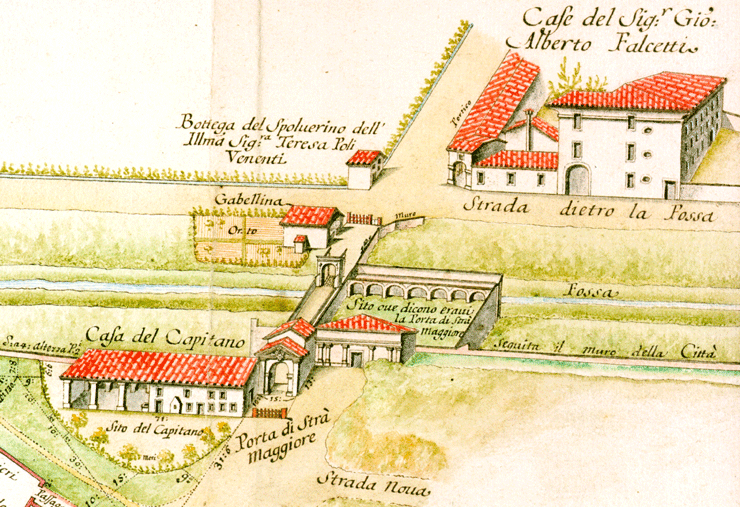 Case del Sig.r Gio:
Alberto Falcetti
Portico
Bottega del Spoluerino dell'
Illma Sig.ra Teresa Poli
Venenti
Gabellina
Orto
Muro
Strada dietro la Fossa
Fossa
Sito oue dicono eraui
la Porta di Strà
Maggiore
Seguita il muro della Città
Casa del Capitano
15:
71:
Sito del Capitano
Mori
Porta di Strà
Maggiore
31:6
Strada Noua
10:
30:
15:
10:
9: